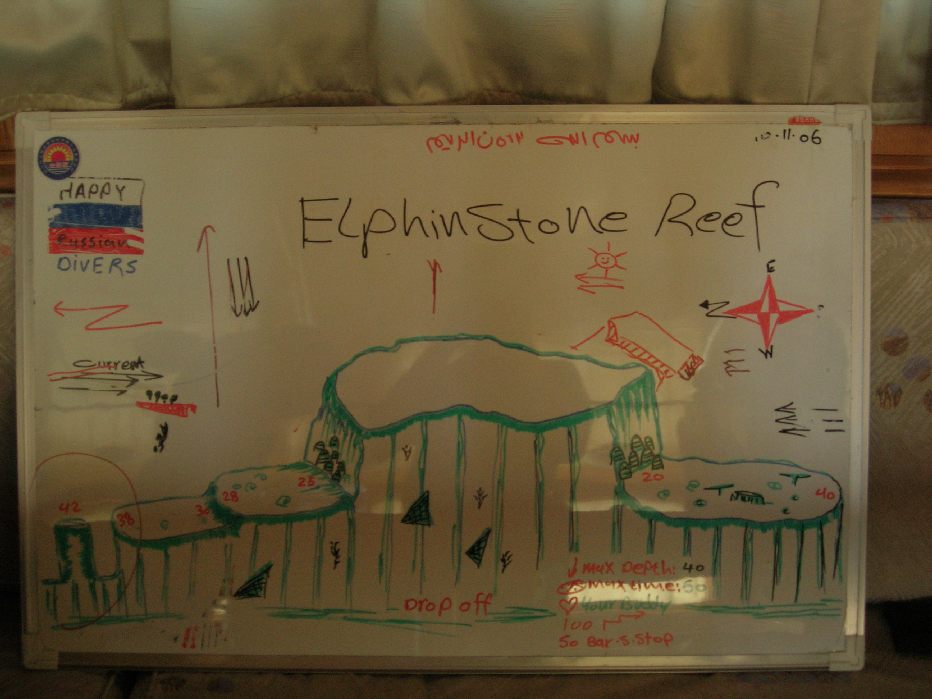 بسم الله الرحمن الرحيم
10.11.06
HAPPY
Russian
DIVERS
ElphinStone Reef
E
W
N
Current
25
28
30
38
42
20
40
Drop off
max Depth: 40
max time: 60
Your Buddy
100
50 Bar S.Stop